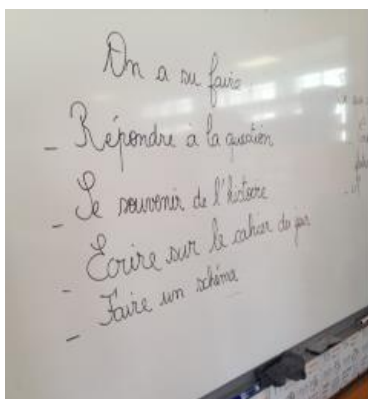 On a su faire
- Répondre à la question
- Se souvenir de l'histoire
- Écrire sur le cahier de jour
- Faire un schéma